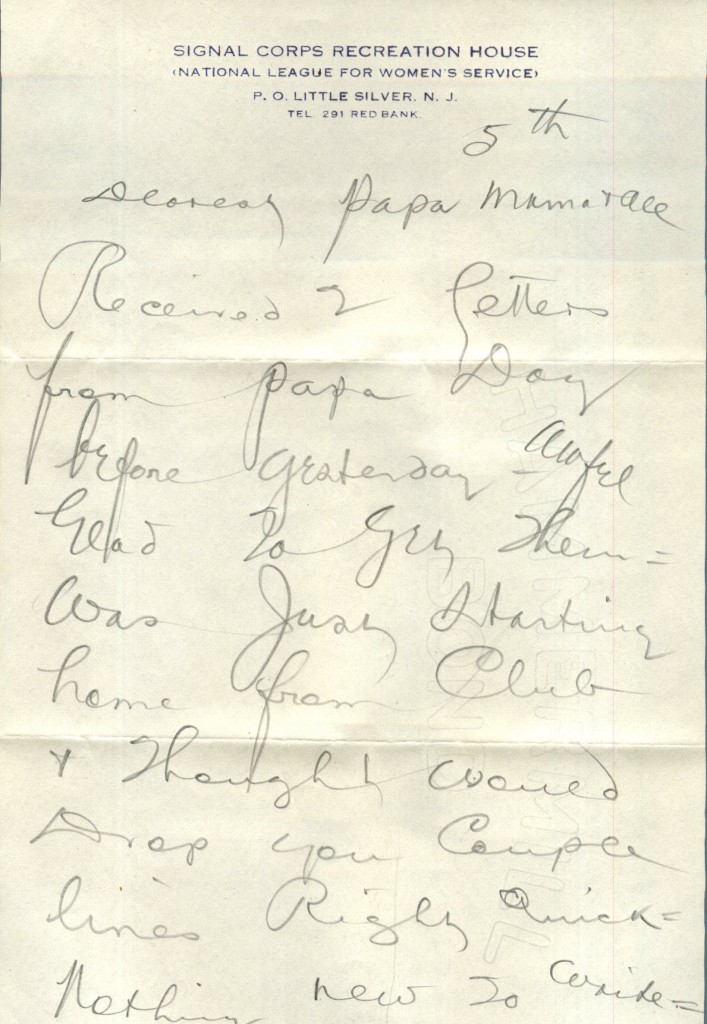 SIGNAL CORPS RECREATION HOUSE
(NATIONAL LEAGUE FOR WOMEN'S SERVICE)
P. O. LITTLE SILVER, N. J.
TEL. 291 RED BANK.
5th
Dearest Papa Mama & all
Received 2 letters
from papa Day
before yesterday - Awful
Glad to Get them =
Was Just Starting
home from Club
& Thought would
Drop you Couple
lines Right Quick =
Nothing new to write =